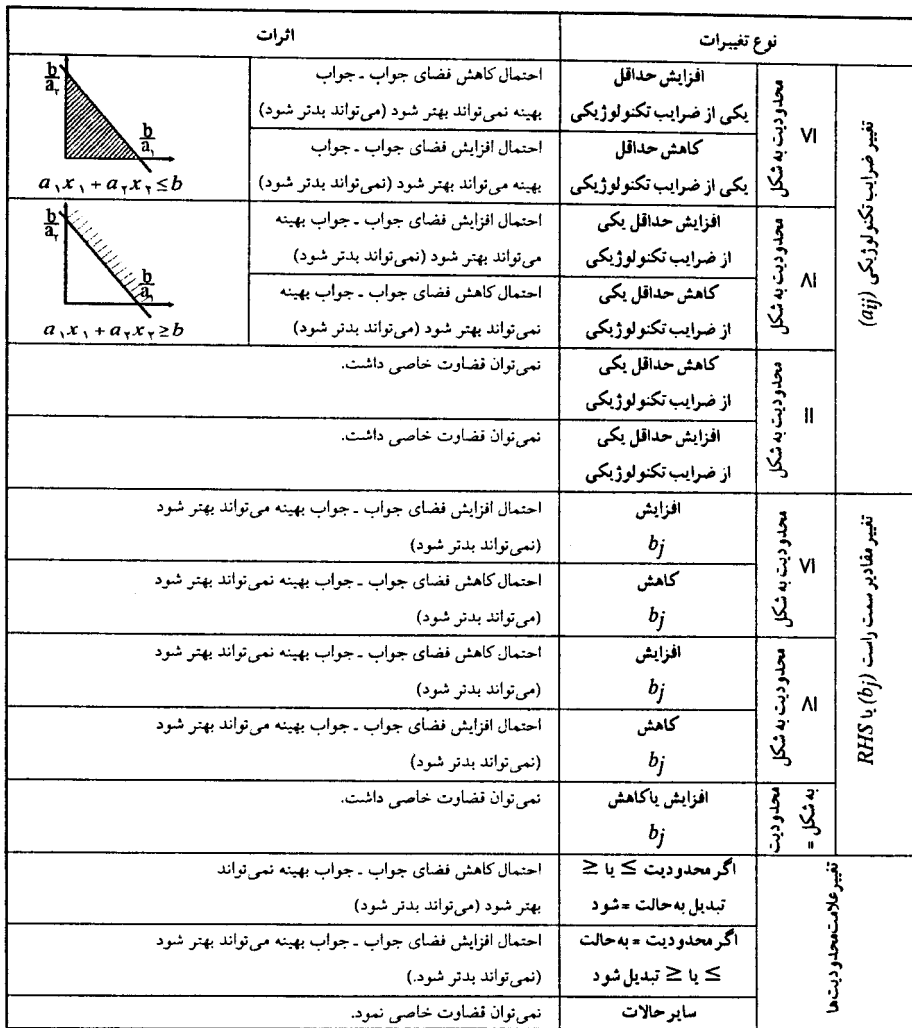 نوع تغییرات
اثرات
تغییر ضرایب تکنولوژیکی (aij)
محدودیت به شکل
≤
افزایش حداقل
یکی از ضرایب تکنولوژیکی
احتمال کاهش فضای جواب ـ جواب
بهینه نمی‌تواند بهتر شود (می‌تواند بدتر شود)
کاهش حداقل
یکی از ضرایب تکنولوژیکی
احتمال افزایش فضای جواب ـ جواب
بهینه می‌تواند بهتر شود (نمی‌تواند بدتر شود)
b/a۲
b/a۱
a۱x۱ + a۲x۲ ≤ b
محدودیت به شکل
≥
افزایش حداقل یکی
از ضرایب تکنولوژیکی
احتمال افزایش فضای جواب ـ جواب بهینه
می‌تواند بهتر شود (نمی‌تواند بدتر شود)
کاهش حداقل یکی
از ضرایب تکنولوژیکی
احتمال کاهش فضای جواب ـ جواب بهینه
نمی‌تواند بهتر شود (می‌تواند بدتر شود)
b/a۲
b/a۱
a۱x۱ + a۲x۲ ≥ b
محدودیت به شکل
=
کاهش حداقل یکی
از ضرایب تکنولوژیکی
نمی‌توان قضاوت خاصی داشت.
افزایش حداقل یکی
از ضرایب تکنولوژیکی
نمی‌توان قضاوت خاصی داشت.
تغییر مقادیر سمت راست (bj) یا RHS
محدودیت به شکل
≤
افزایش
bj
احتمال افزایش فضای جواب ـ جواب بهینه می‌تواند بهتر شود
(نمی‌تواند بدتر شود)
کاهش
bj
احتمال کاهش فضای جواب ـ جواب بهینه نمی‌تواند بهتر شود
(می‌تواند بدتر شود)
محدودیت به شکل
≥
افزایش
bj
احتمال کاهش فضای جواب ـ جواب بهینه نمی‌تواند بهتر شود
(می‌تواند بدتر شود)
کاهش
bj
احتمال افزایش فضای جواب ـ جواب بهینه می‌تواند بهتر شود
(نمی‌تواند بدتر شود)
محدودیت
به شکل =
افزایش یا کاهش
bj
نمی‌توان قضاوت خاصی داشت.
تغییر علامت محدودیت‌ها
اگر محدودیت ≤ یا ≥
تبدیل به حالت = شود
احتمال کاهش فضای جواب ـ جواب بهینه نمی‌تواند
بهتر شود (می‌تواند بدتر شود)
اگر محدودیت = به حالت
≥ یا ≤ تبدیل شود
احتمال افزایش فضای جواب ـ جواب بهینه می‌تواند بهتر شود
(نمی‌تواند بدتر شود.)
سایر حالات
نمی‌توان قضاوت خاصی نمود.